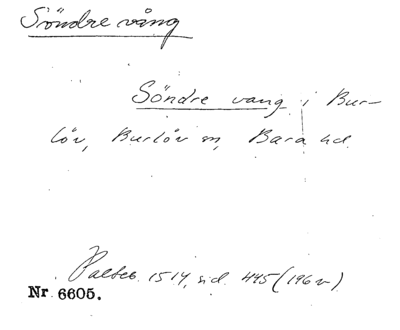 Söndre vång
Söndre vang i Bur-
löv, Burlöv sn, Bara hd.
Palteb. 1514, sid. 445 (196 v)
Nr 6605.